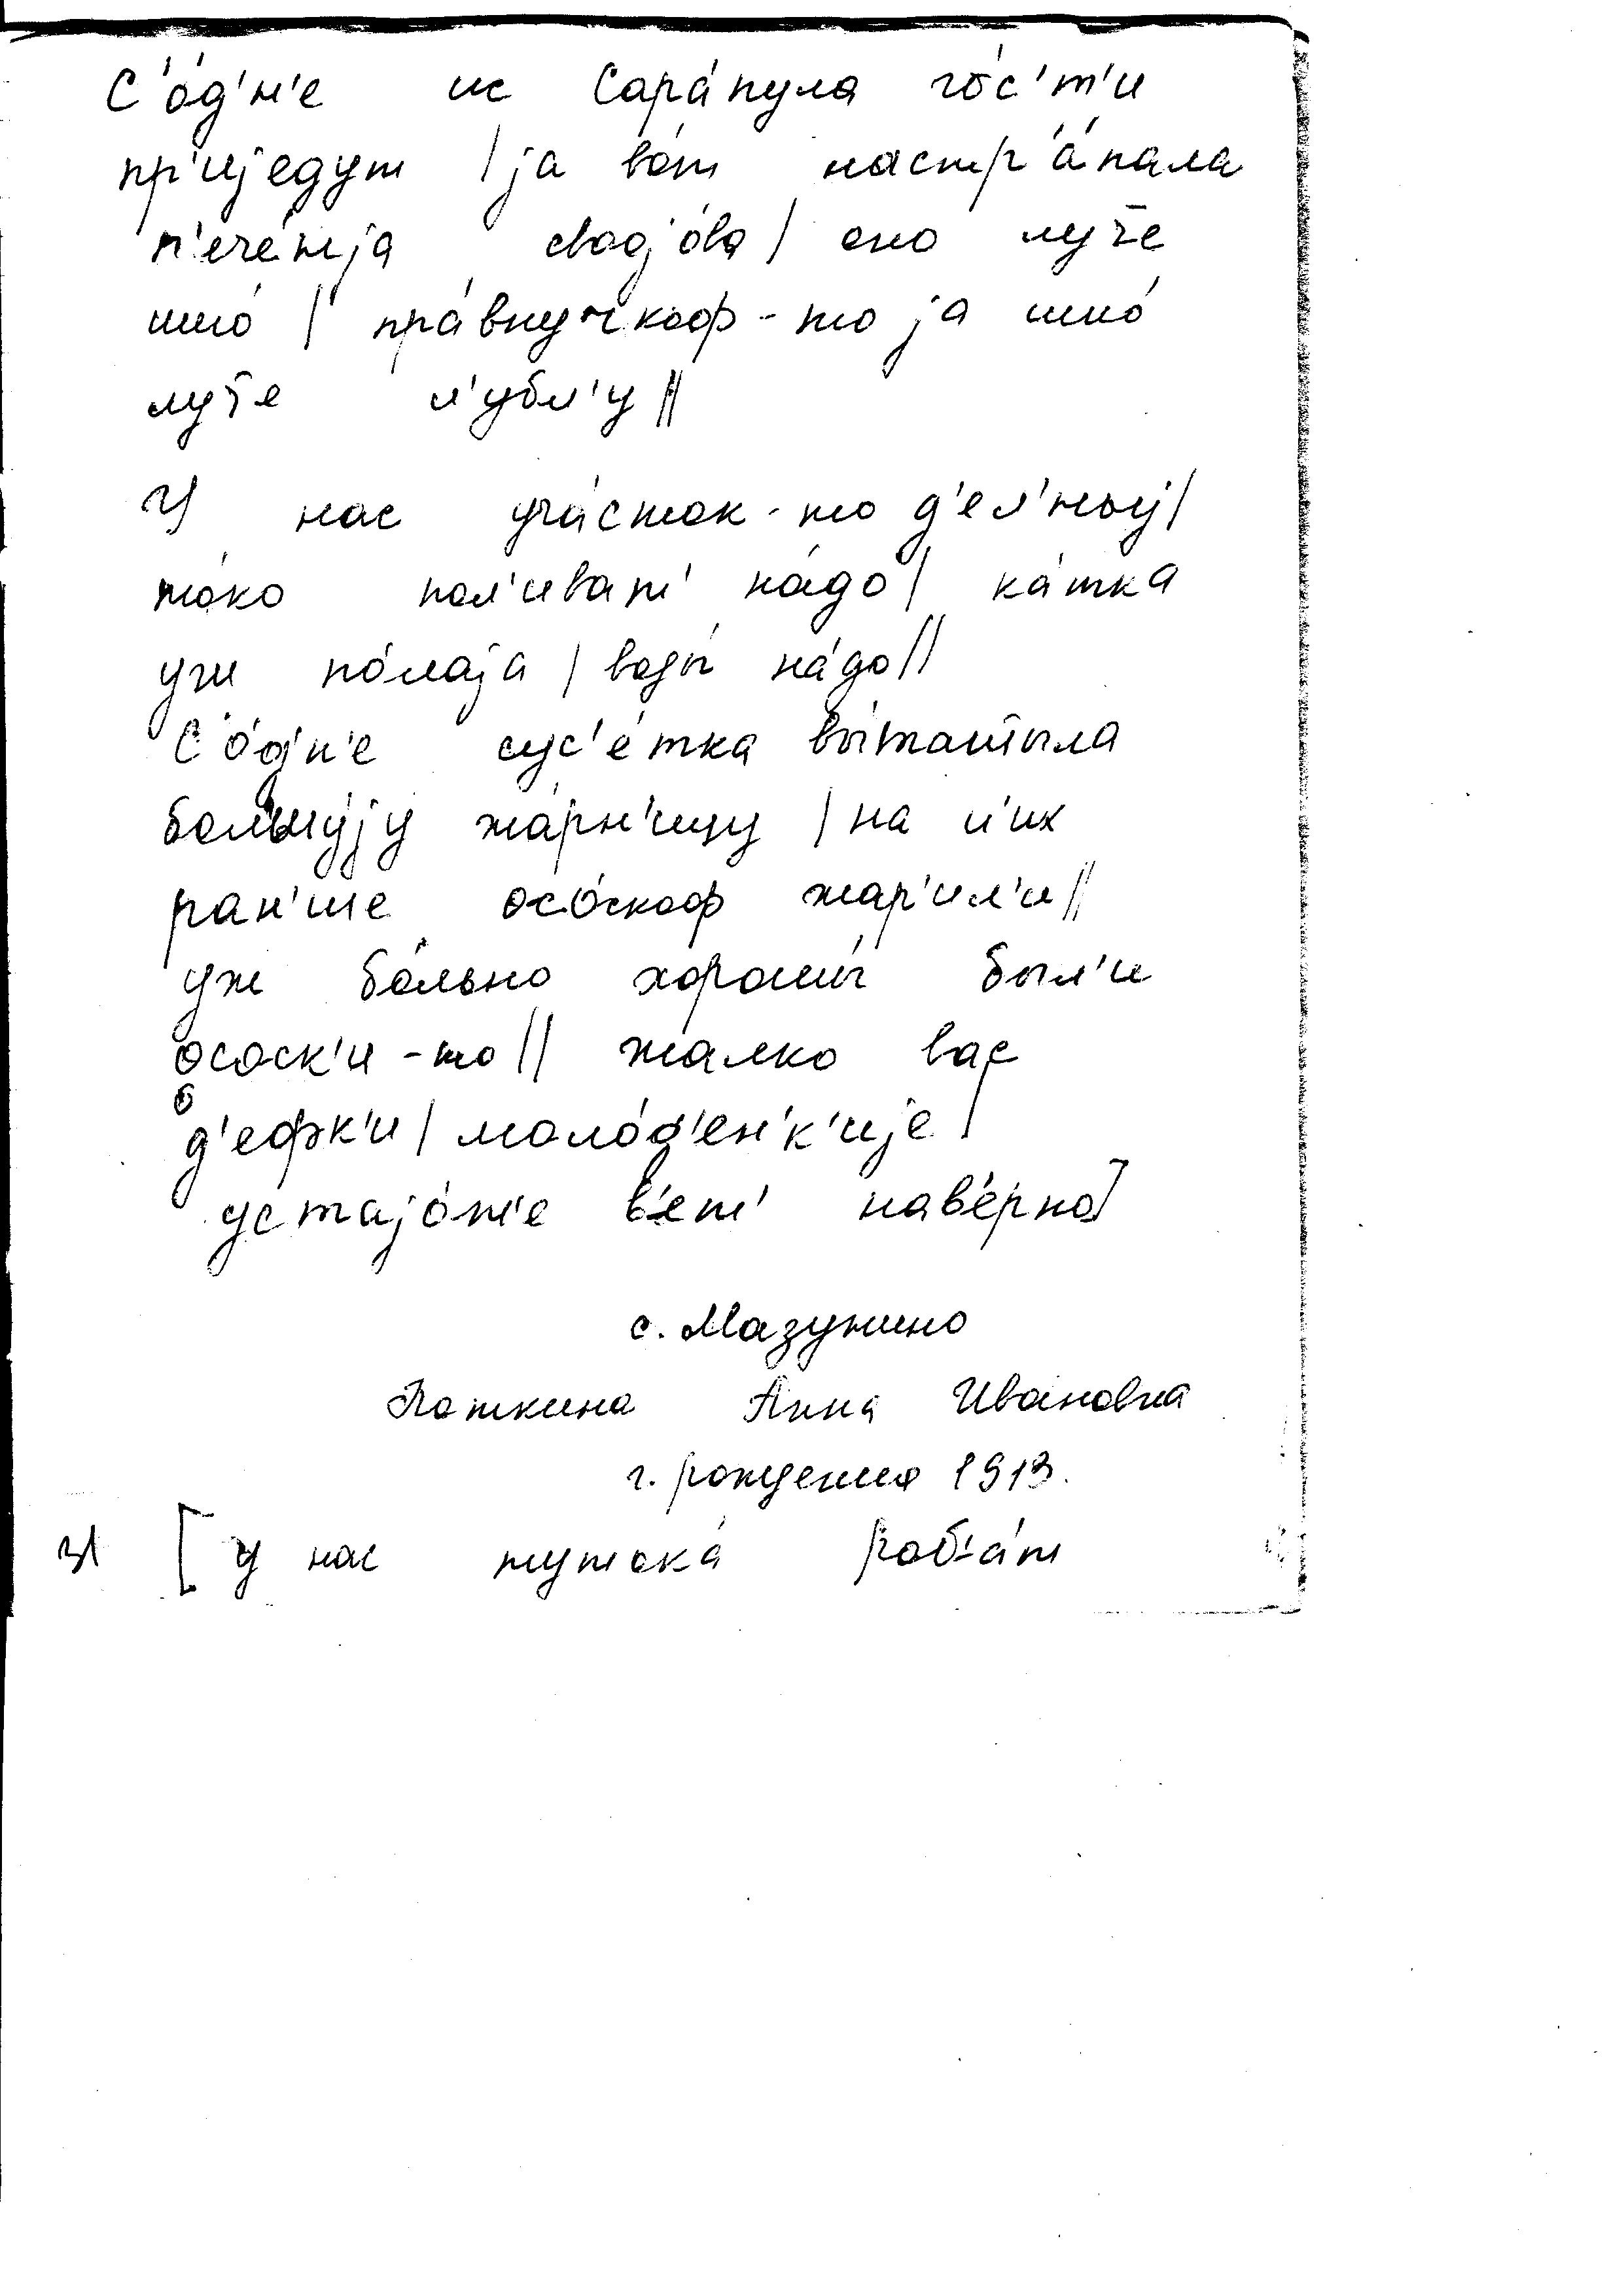 С'о́д'н'е ис Сара́пула го́с'т'и
пр'иједут | ја во́т настр'а́пала
п'ече́н'ја својо́во | оно лӯче
шно́ | пра́внучкоф-то ја шно́
лӯче л'убл'у ||
У нас уча́сток-то д'ел'ный |
то́ко пол'иват' на́до | ка́тка
уж по́лаја | воды́ на́до ||
С'о́д'н'е сус'е́тка вы́ташшыла
большу́ју жа́рн'ицу | на и́их
ран'ше осо́скоф жар'ил'и ||
уж бо́льно хорошы́ был'и
ососк'и-то || жалко вас
д'ефк'и | моло́д'ен'к'ије |
устајо́т'е в'ет' наве́рно]
с. Мазунино
Поткина Анна Ивановна
г. рождения 1913.
3) [У нас тутока́ роб'а́т